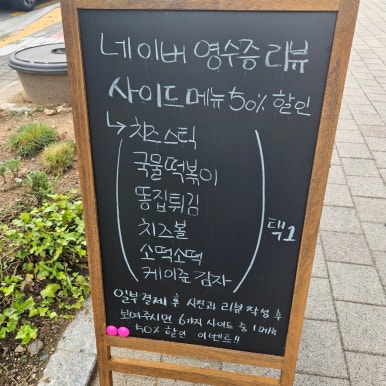 네이버 영수증 리뷰
사이드메뉴 50% 할인
↳ 치즈스틱
국물떡볶이
똥집튀김
치즈볼
소떡소떡
케이준 감자
택1
일부 결제 후 사진과 리뷰 작성 후
보여주시면 6가지 사이드 중 1메뉴
50% 할인 이벤트!!